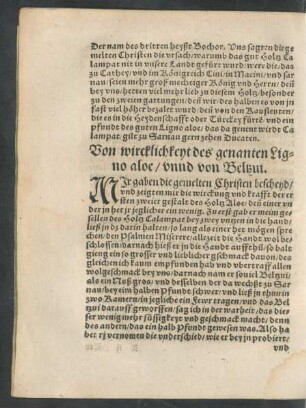 Der nam des dritten heysst Bochor. Vns sagten die ge
melten Christen die vrsach/warumb das gut Holtz Ca
lampat nit in vnsere Land gefürt wurd: were die/das
zu Cathey/vnd im Königreich Cini/in Macini/vnd sar
nau/seien mehr groß mechtiger König vnd Herren/deñ
bey vns/hetten viel mehr lieb in diesem Holtz/besonder
zu den zweien gattungen/deñ wir/des halben es von jn
fast viel höher bezalet wurd/deñ von den Kaufleuten/
die es in die Heydenschafft oder Türckey fürtē vnd ein
pfund des guten Ligno aloe/das da genent wirdt Ca
lampat/gilt zu Sarnau gern zehen Ducaten.
Von wircklichkeyt des genanten Lig-
no aloe/vnnd von Beltzui.
MIr gaben die gemelten Christen bescheyd/
vnd zeigten mir die wirckung vnd krafft der er
sten zweier gestalt des Holtz Aloe/deñ einer vn
der jn het jr jeglicher ein wenig. Zu erst gab er meim ge
sellen des Holtz Calampat bey zwey vntzen in die hand/
ließ in das darin halten/so lang als einer het mögen spre
chen/den Psalmen Miserere/allezeit die Hande wol be
schlossen/darnach hieß er jn die Hande auffthů/so balt
gieng ein so grosser vnd lieblicher geschmack dauon/des
gleichen ich kaum empfunden hab/vnd übertraff allen
wolgeschmack bey vns/darnach nam er souiel Beltzui/
als ein Nuß gros/vnd desselben der da wechßt zu Sar
nau/bey eim halben Pfundt schwer/vnd ließ jn thun in
zwo Kamern/in jegliche ein Fewr tragen/vnd das Bel
zui darauff geworffen/sag ich in der warheit/das die
ser wenig mehr süssigkeyt vnd geschmack macht/denn
des andern/das ein halb Pfundt gewesen was. Also ha
bet jr vernomen die vnderschied/wie er bey jn probiert/
vnd